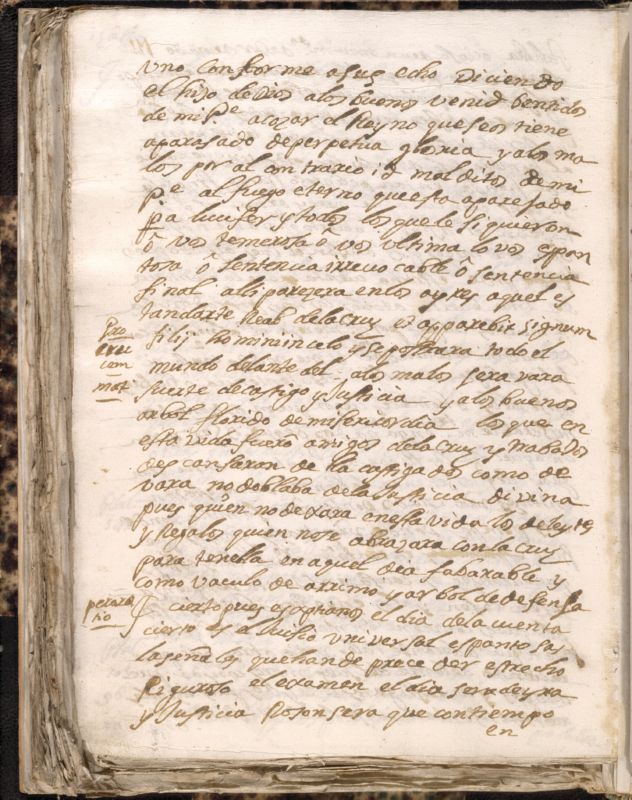 Uno conforme a sus echo Diciendo
el hijo de Dios a los buenos venid bentidos
de mi Pe a gozar el Reyno que se os tiene
aparasado de perpetua gloria y a los ma
los por al contrario id malditos de mi
pe al fuego eterno que esta aparesado
pa lucifer y todos los que le siguieron
ô vos temerosa ô vos ultima lo vos espan
tosa ô sentencia irreuocable ô sentencia
final alli parezera en los ayres aquel es
tandarte Real de la cruz et apparebit signum
filij hominin celo y se postrara todo el
mundo delante del a los malos sera vara
fuerte de castigo y Justicia y a los buenos
arbol florido de misericordia los que en
esta vida fuerō amigos de la cruz y trabaJos
descansaran de lla castigados como de
vara no doblaba de la Justicia divina
pues quien no dexara en esta vida los deleytes
y Regalos quien no se abrazara con la cruz
para tenella en aquel dia fabarable y
como vaculo de arrimo y arbol de defensa
cierto pues a xptianos el dia de la cuenta
cierto es el Juhio universal espantosas
las señales que han de preceder estrecho
Riguroso el examen el dia sera de yra
y Justicia Rason sera que con tiempo
en
Pro
cru
com
mat